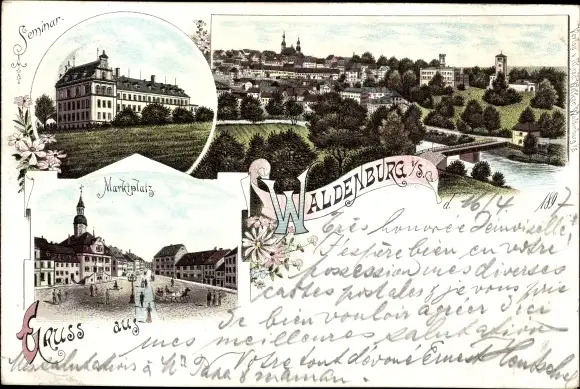 Seminar.
WALDENBURG i/S.
d. 16/4 1897
Marktplatz
Très honorée Demoiselle!
J'espère bien en votre
possession mes diverses
cartes postales & je vous prie
de bien vouloir agréer d'ici
mes meilleures salutation
Votre tout dévoué Ernest Hentschel
Gruss aus
Mes salutations à Mr Papa & maman.